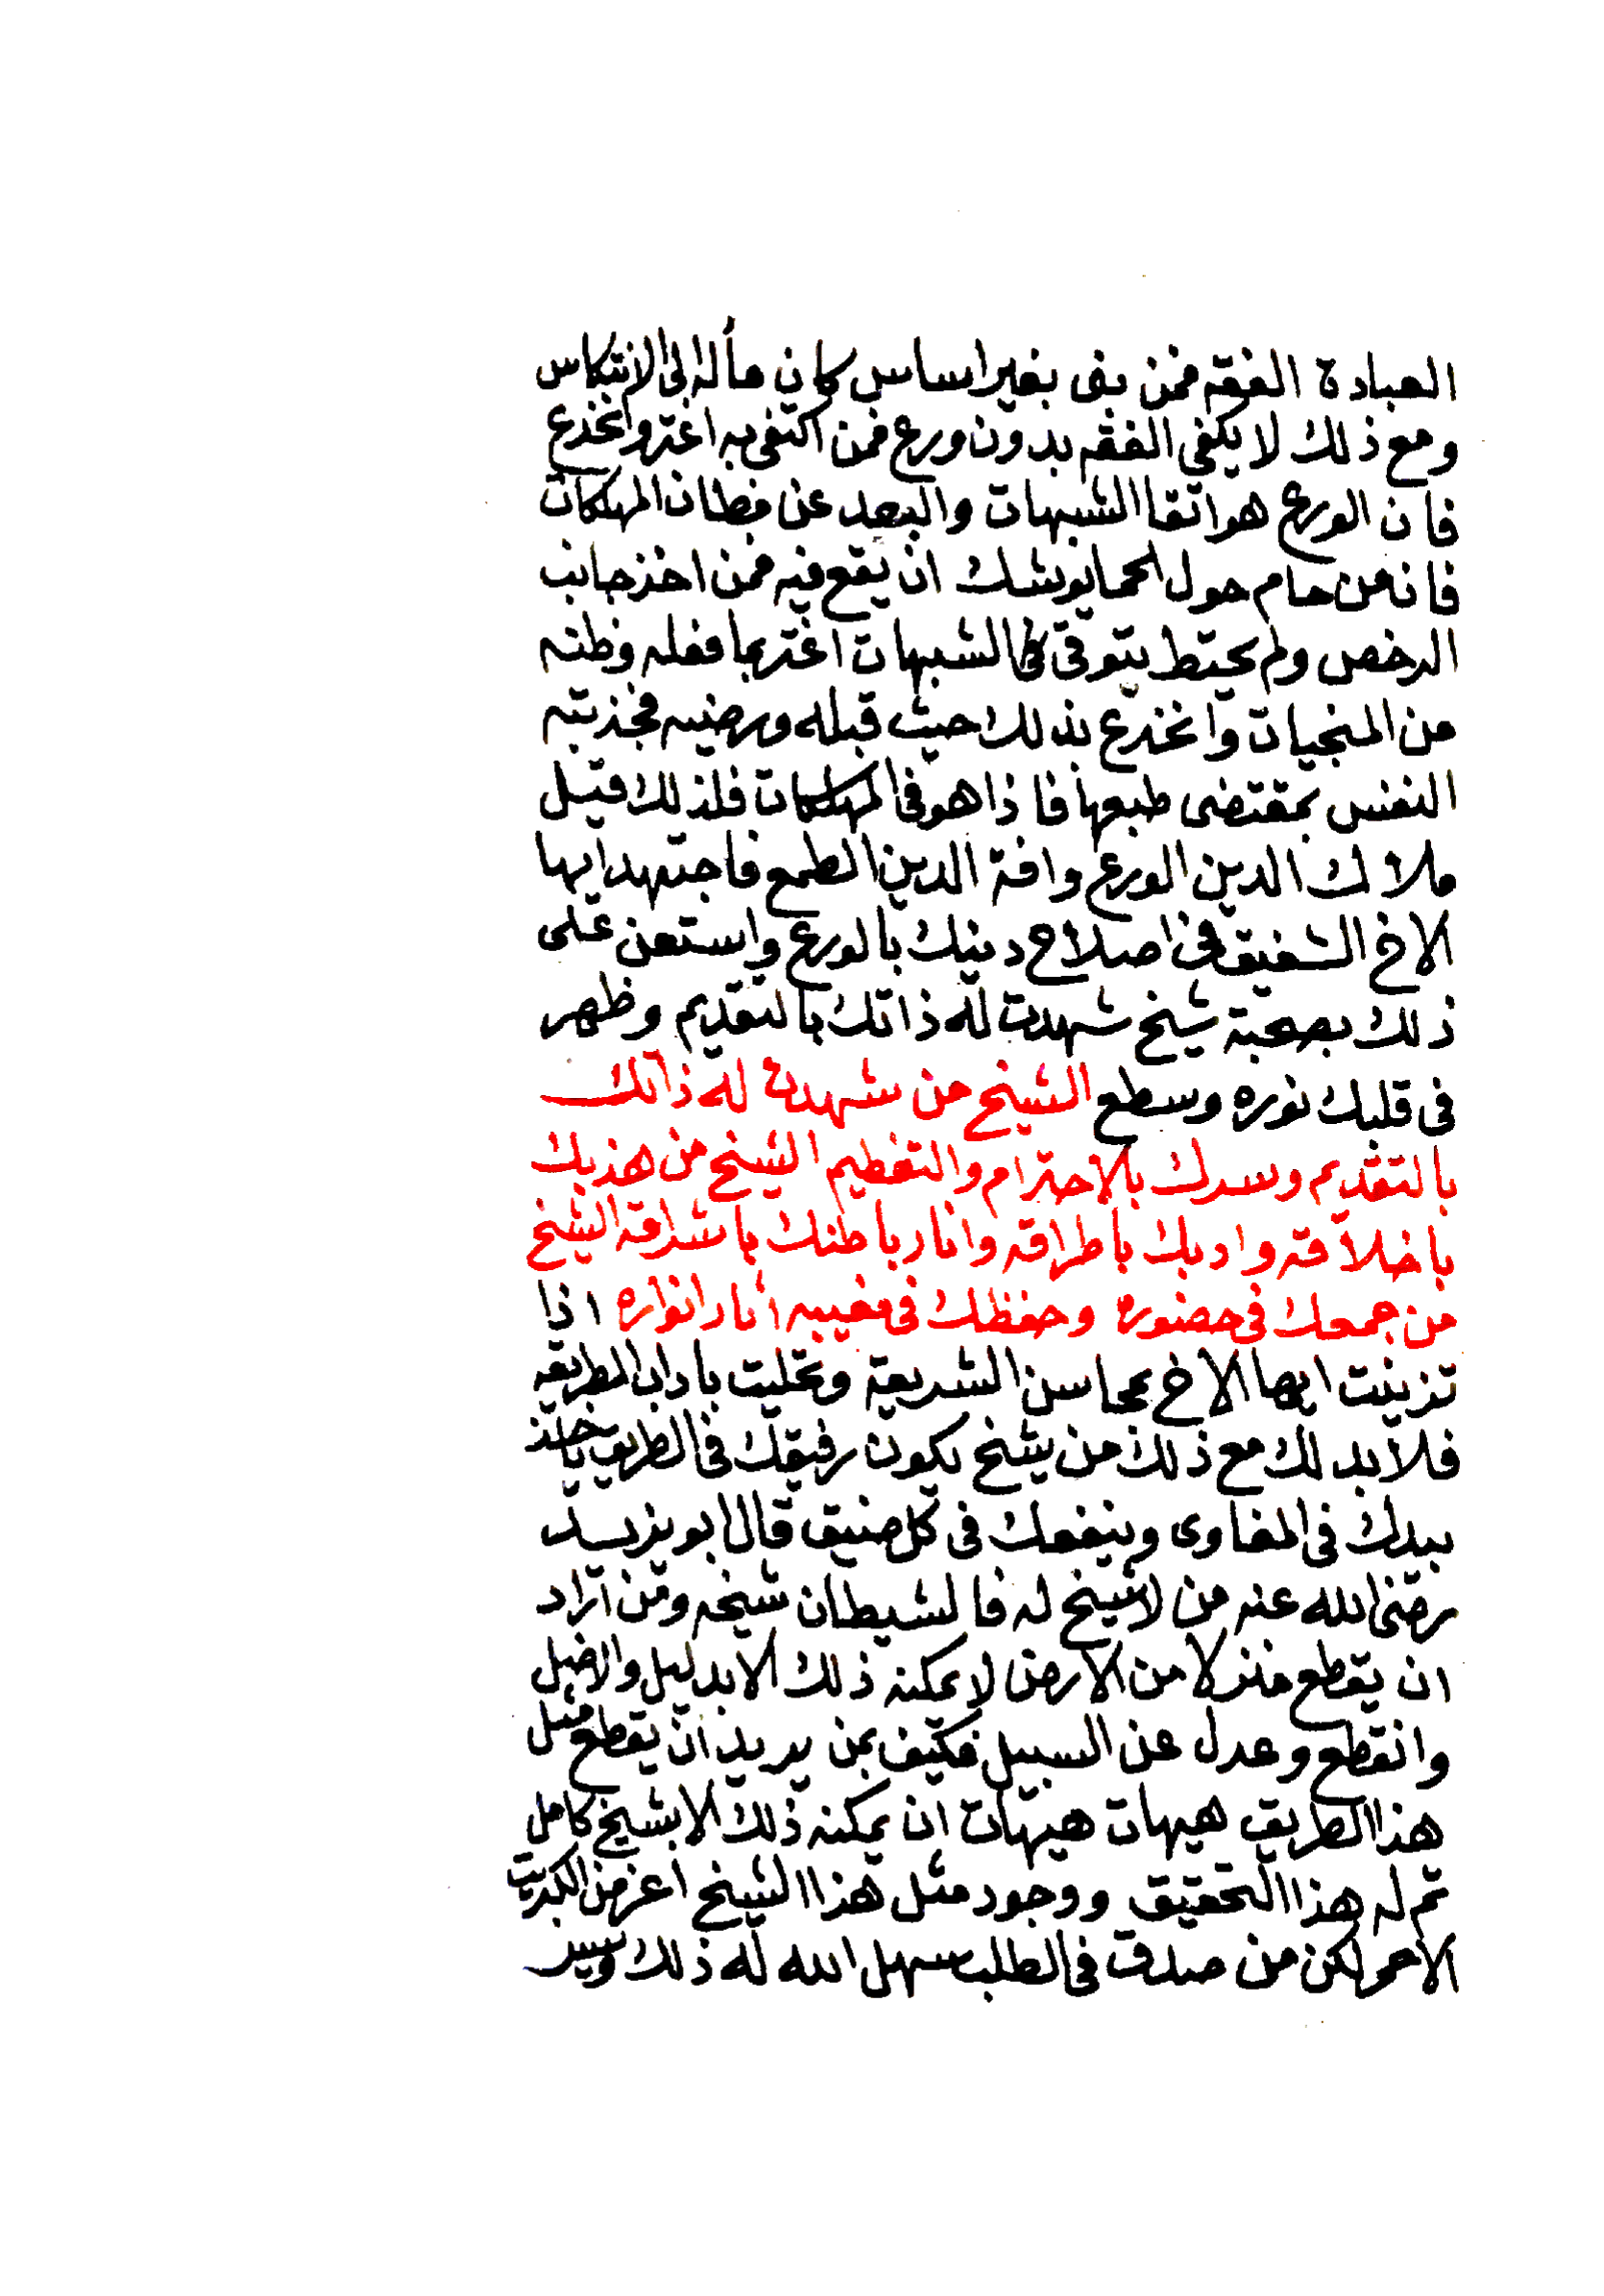 العبادة الفقه فمن بنى بغير اساس كان مأله الى الانتكاس
ومع ذلك لا يكفي الفقه بدون ورع فمن اكتفى به اغتر وانخدع
فان الورع هو اتقا الشبهات والبعد عن مظان المهلكات
فانه من حام حول الحما يوشك ان يقع فيه فمن اخذ جانب
الرخص ولم يحتط بتوقى الشبهات اغتر بما فعله وظنه
من المنجيات وانخدع بذلك حيث قبله ورضيه فجذبته
النفس بمقتضى طبعها فاذا هو في المهلكات فلذلك قيل
ملاك الدين الورع وافة الدين الطمع فاجتهد ايها
الاخ الشفيق في اصلاح دينك بالورع واستعن على
ذلك بصحبة شيخ شهدت له ذاتك بالتقديم وظهر
في قلبك نوره وسطع الشيخ من شهدت له ذاتك
بالتقديم وسرك بالاحترام والتعظيم الشيخ من هذبك
باخلاقه وادبك باطراقه وانار باطنك باشراقه الشيخ
من جمعك في حضوره وحفظك في مغيبه اثار انواره اذا
تزينت ايها الاخ بمحاسن الشريعة وتحليت باداب الطريقه
فلا بد لك مع ذلك من شيخ يكون رفيقك في الطريق ياخذ
بيدك في المغاوى وينفعك في كل ضيق قال ابو يزيد
رضى الله عنه من لا شيخ له فالشيطان شيخه ومن اراد
ان يقطع منزلا من الارض لا يمكنه ذلك الا بدليل والا ضل
وانقطع وعدل عن السبيل فكيف بمن يريد ان يقطع مثل
هذا الطريق هيهات هيهات ان يمكنه ذلك الا بشيخ كامل
تم له هذا التحقيق ووجود مثل هذا الشيخ اعز من الكبريت
الاحمر لكن من صدق في الطلب سهل الله له ذلك ويسر